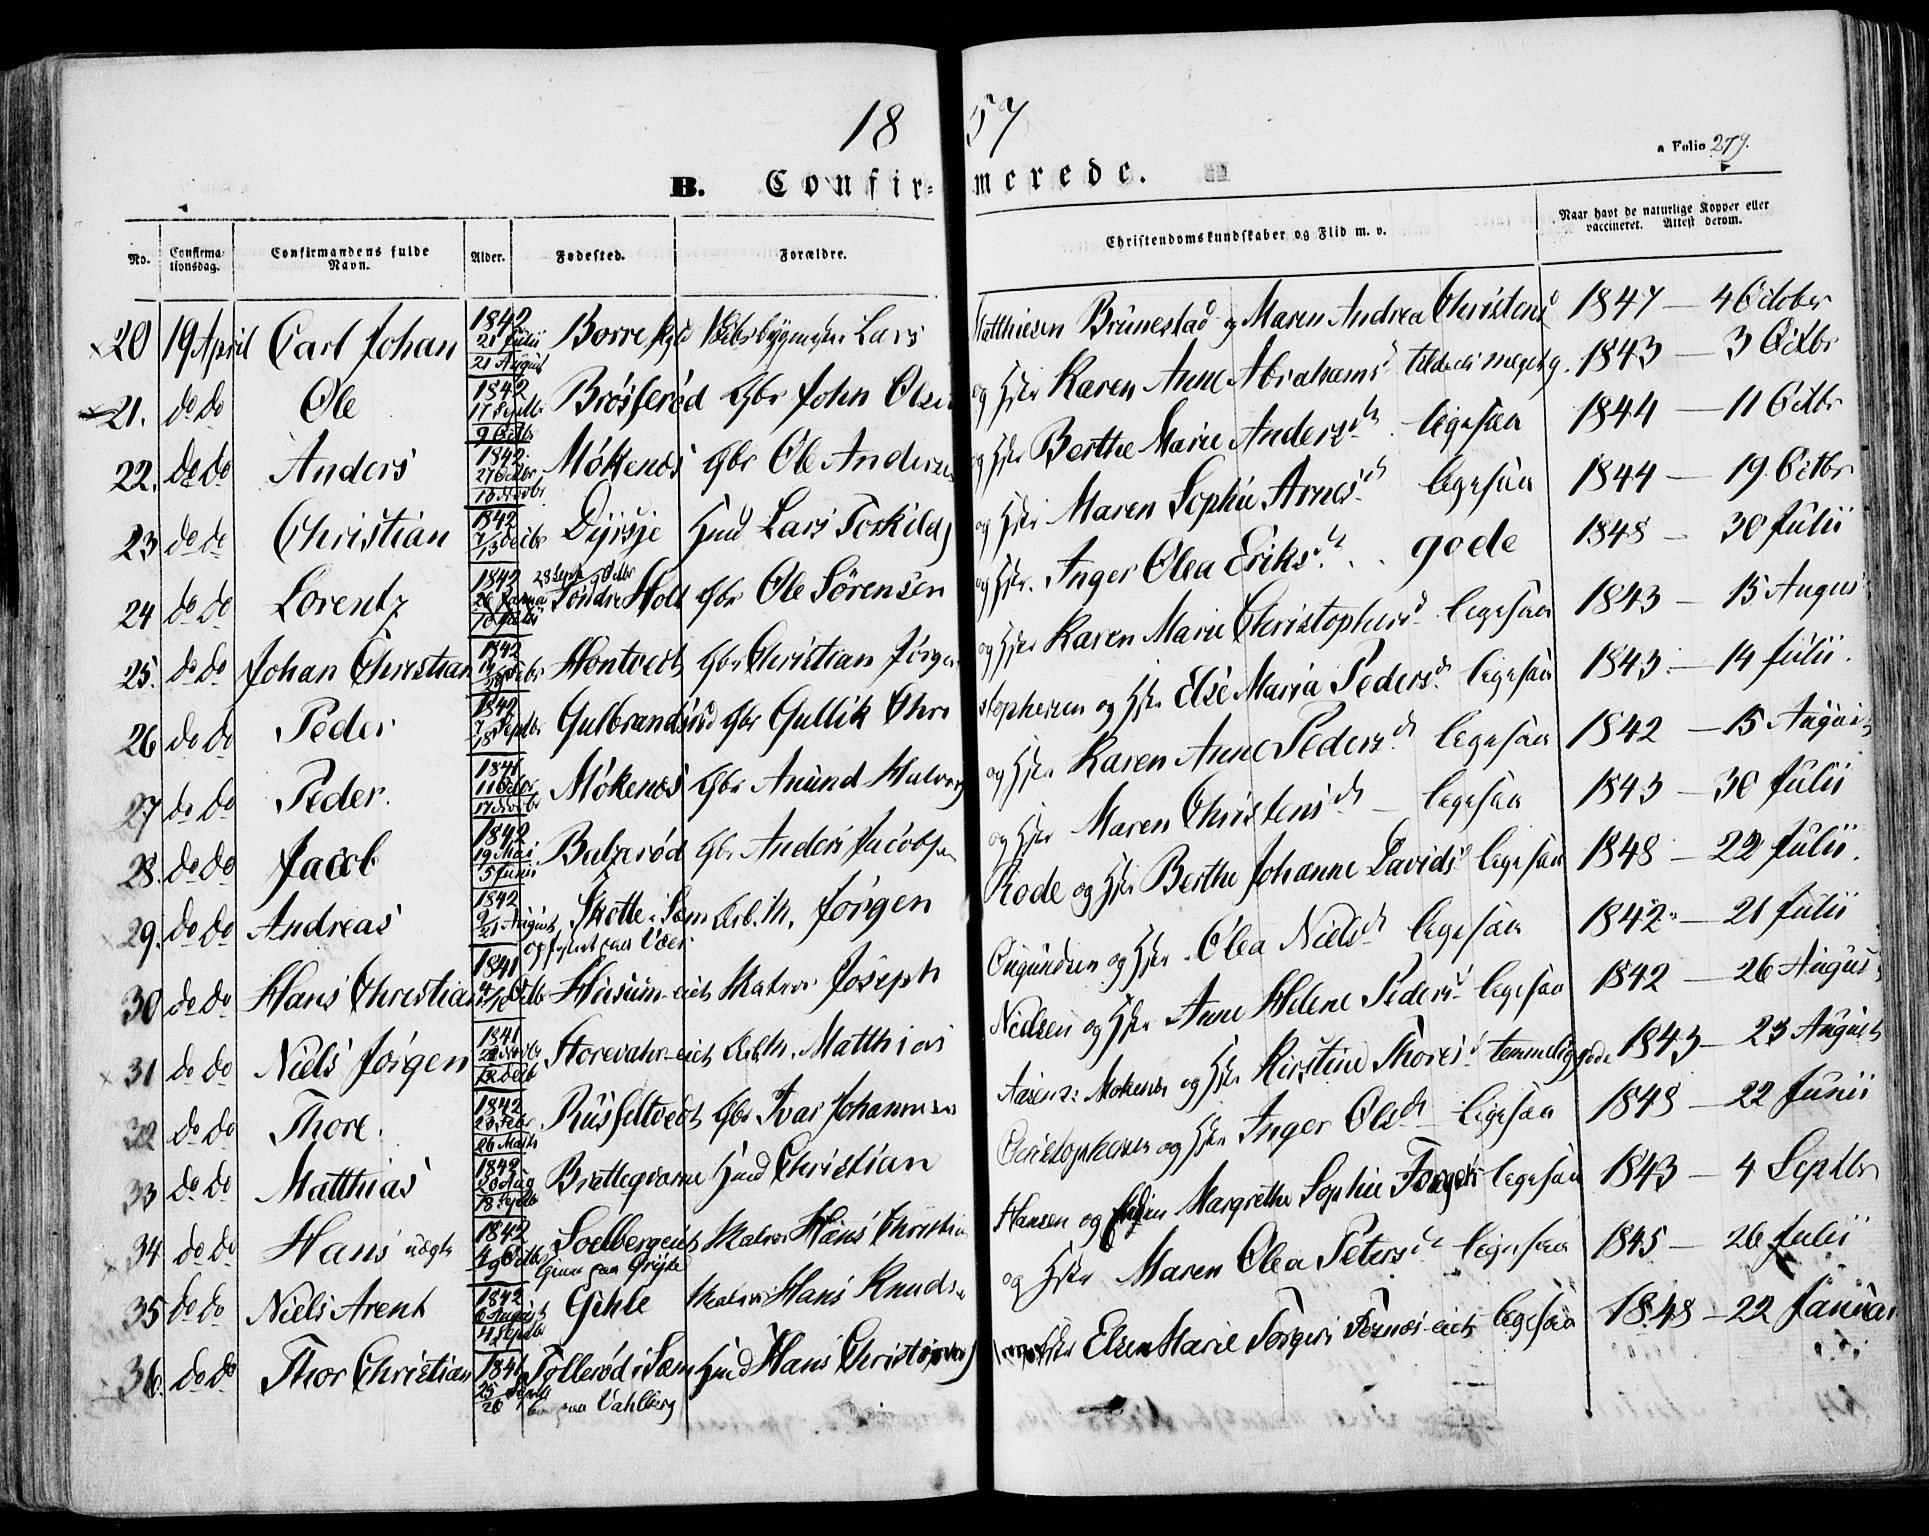 18 57
a Folio 279.
B. Confir= merede.
No. Confirma-tionsdag. Confirmandens fulde Navn. Alder. Fødested. Forældre. Christendomskundskaber og Flid m. v. Naar havt de naturlige Kopper eller vaccineret. Attest derom.
20 19 April Carl Johan 1842 21 Julii 21 August Borre Lars Matthiesen Brunestad og Maren Andrea Christensd 1847 — 4 October
21. do do Ole 1842 17 Septbr 9 Octbr Brøsferød Gbr John Olsen og Hstr Karen Anne Abrahamsd 1843 — 3 Octbr
22. do do Anders 1842 27 Octbr 13 Novbr Møkenæs Gbr Ole Andersen og Hstr Berthe Marie Andersdt. ligesaa 1844 — 11 Octbr
23 do do Christian 1842 7/13 Decbr Dyrsje Hmd Lars Torkilds og Hstr Maren Sophie Arnesdt ligesaa 1844 — 19 Octbr
24 do do Lorentz 1842 Søndre Holt Gbr Ole Sörensen og Hstr. Anger Olea Eriksdt. gode 1848 — 30 Julii
25. do do Johan Christian 1842 Hontvedt Gbr Christian Jörgen og Hstr Karen Marie Christophersd ligesaa 1843 — 15 August
26 do do Peder 1842 7/18 Septbr Gulbrandsrød Gbr Gullik Chri stophersen og Hstr Else Maria Pedersdt ligesaa 1843 — 14 Julii.
27 do do Peder. 1841 11 Octbr 17 Novbr Møkenæs Gbr Amund Halvors og Hstr Karen Anne Pedersdt ligesaa 1842 — 15 August
28. do do Jacob 1842 19 Mai 5 Junii Bulzerød Gbr Anders Jacobsen og Hstr Maren Christensdt — ligesaa 1843 — 30 Julii
29. do do Andreas 1842 9/21 August Skotte i Sem Arb.th. Jörgen Rode og Hstr Berthe Johanne Davidsd ligesaa 1848 — 22 Julii.
opfostret paa
30 do do Hans Christian 1841 4/10 Octbr Husum-eiet Matros Joseph og Hstr Olea Nielsdt ligesaa 1842 — 21 Julii
31 do do Niels Jörgen 1841 21 Novbr 12 Decbr Storevahr-eiet Arb.th. Matthias Nielsen og Hstr Anne Helene Pedersd ligesaa 1842 — 26 August
32 do do Thore. 1842 23 Febr 26 Marts Rusfeltvedt Gbr Ivar Johannesen og Hstr Kirstine Thoresd temmelig gode 1843 — 23 August
33 do do Matthias 1842 20 Aug 18 Septbr Brettegvarne Hmd Christian Christophersen og Hstr Inger Olsdt ligesaa 1848 — 22 Junii
34 do do Hans uægte 1842 4/9 Octbr Soelbergeiet Matros Hans Christian Hansen og Margrethe Sophie ligesaa 1843 — 4 Septbr
35 do do Niels Arent 1842 6 August 4 Septbr Gihle Matros Hans Knudsen og Hstr Maren Olea Petersdt ligesaa 1845 — 26 Julii
36. do do Thor Christian 1841 25/26 Tollerød i Sem Hmd Hans Christophers Hstr Elsen Marie ligesaa 1848 — 22 Januar